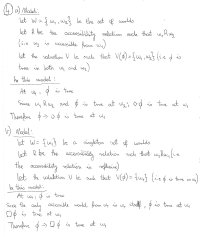 4) a) Model:
Let W = {w₁, w₂} be the set of worlds
Let R be the accessibility relation such that w₁Rw₂
(i.e. w₂ is accessible from w₁)
Let the valuation V be such that V(ϕ) = {w₁, w₂} (i.e. ϕ is
true in both w₁ and w₂)
In this model:
At w₁, ϕ is true
Since w₁Rw₂ and ϕ is true at w₂, ◊ϕ is true at w₁
Therefore ϕ → ◊ϕ is true at w₁
Model:
Let W = {w₁} be a singleton set of worlds
Let R be the accessibility relation such that w₁Rw₁ (i.e.
the accessibility relation is reflexive)
Let the valuation V be such that V(ϕ) = {w₁} (i.e. ϕ is true in w₁)
In this model:
At w₁, ϕ is true
Since the only accessible world from w₁ is w₁ itself, ϕ is true at w₁
□ϕ is true at w₁
Therefore ϕ → □ϕ is true at w₁